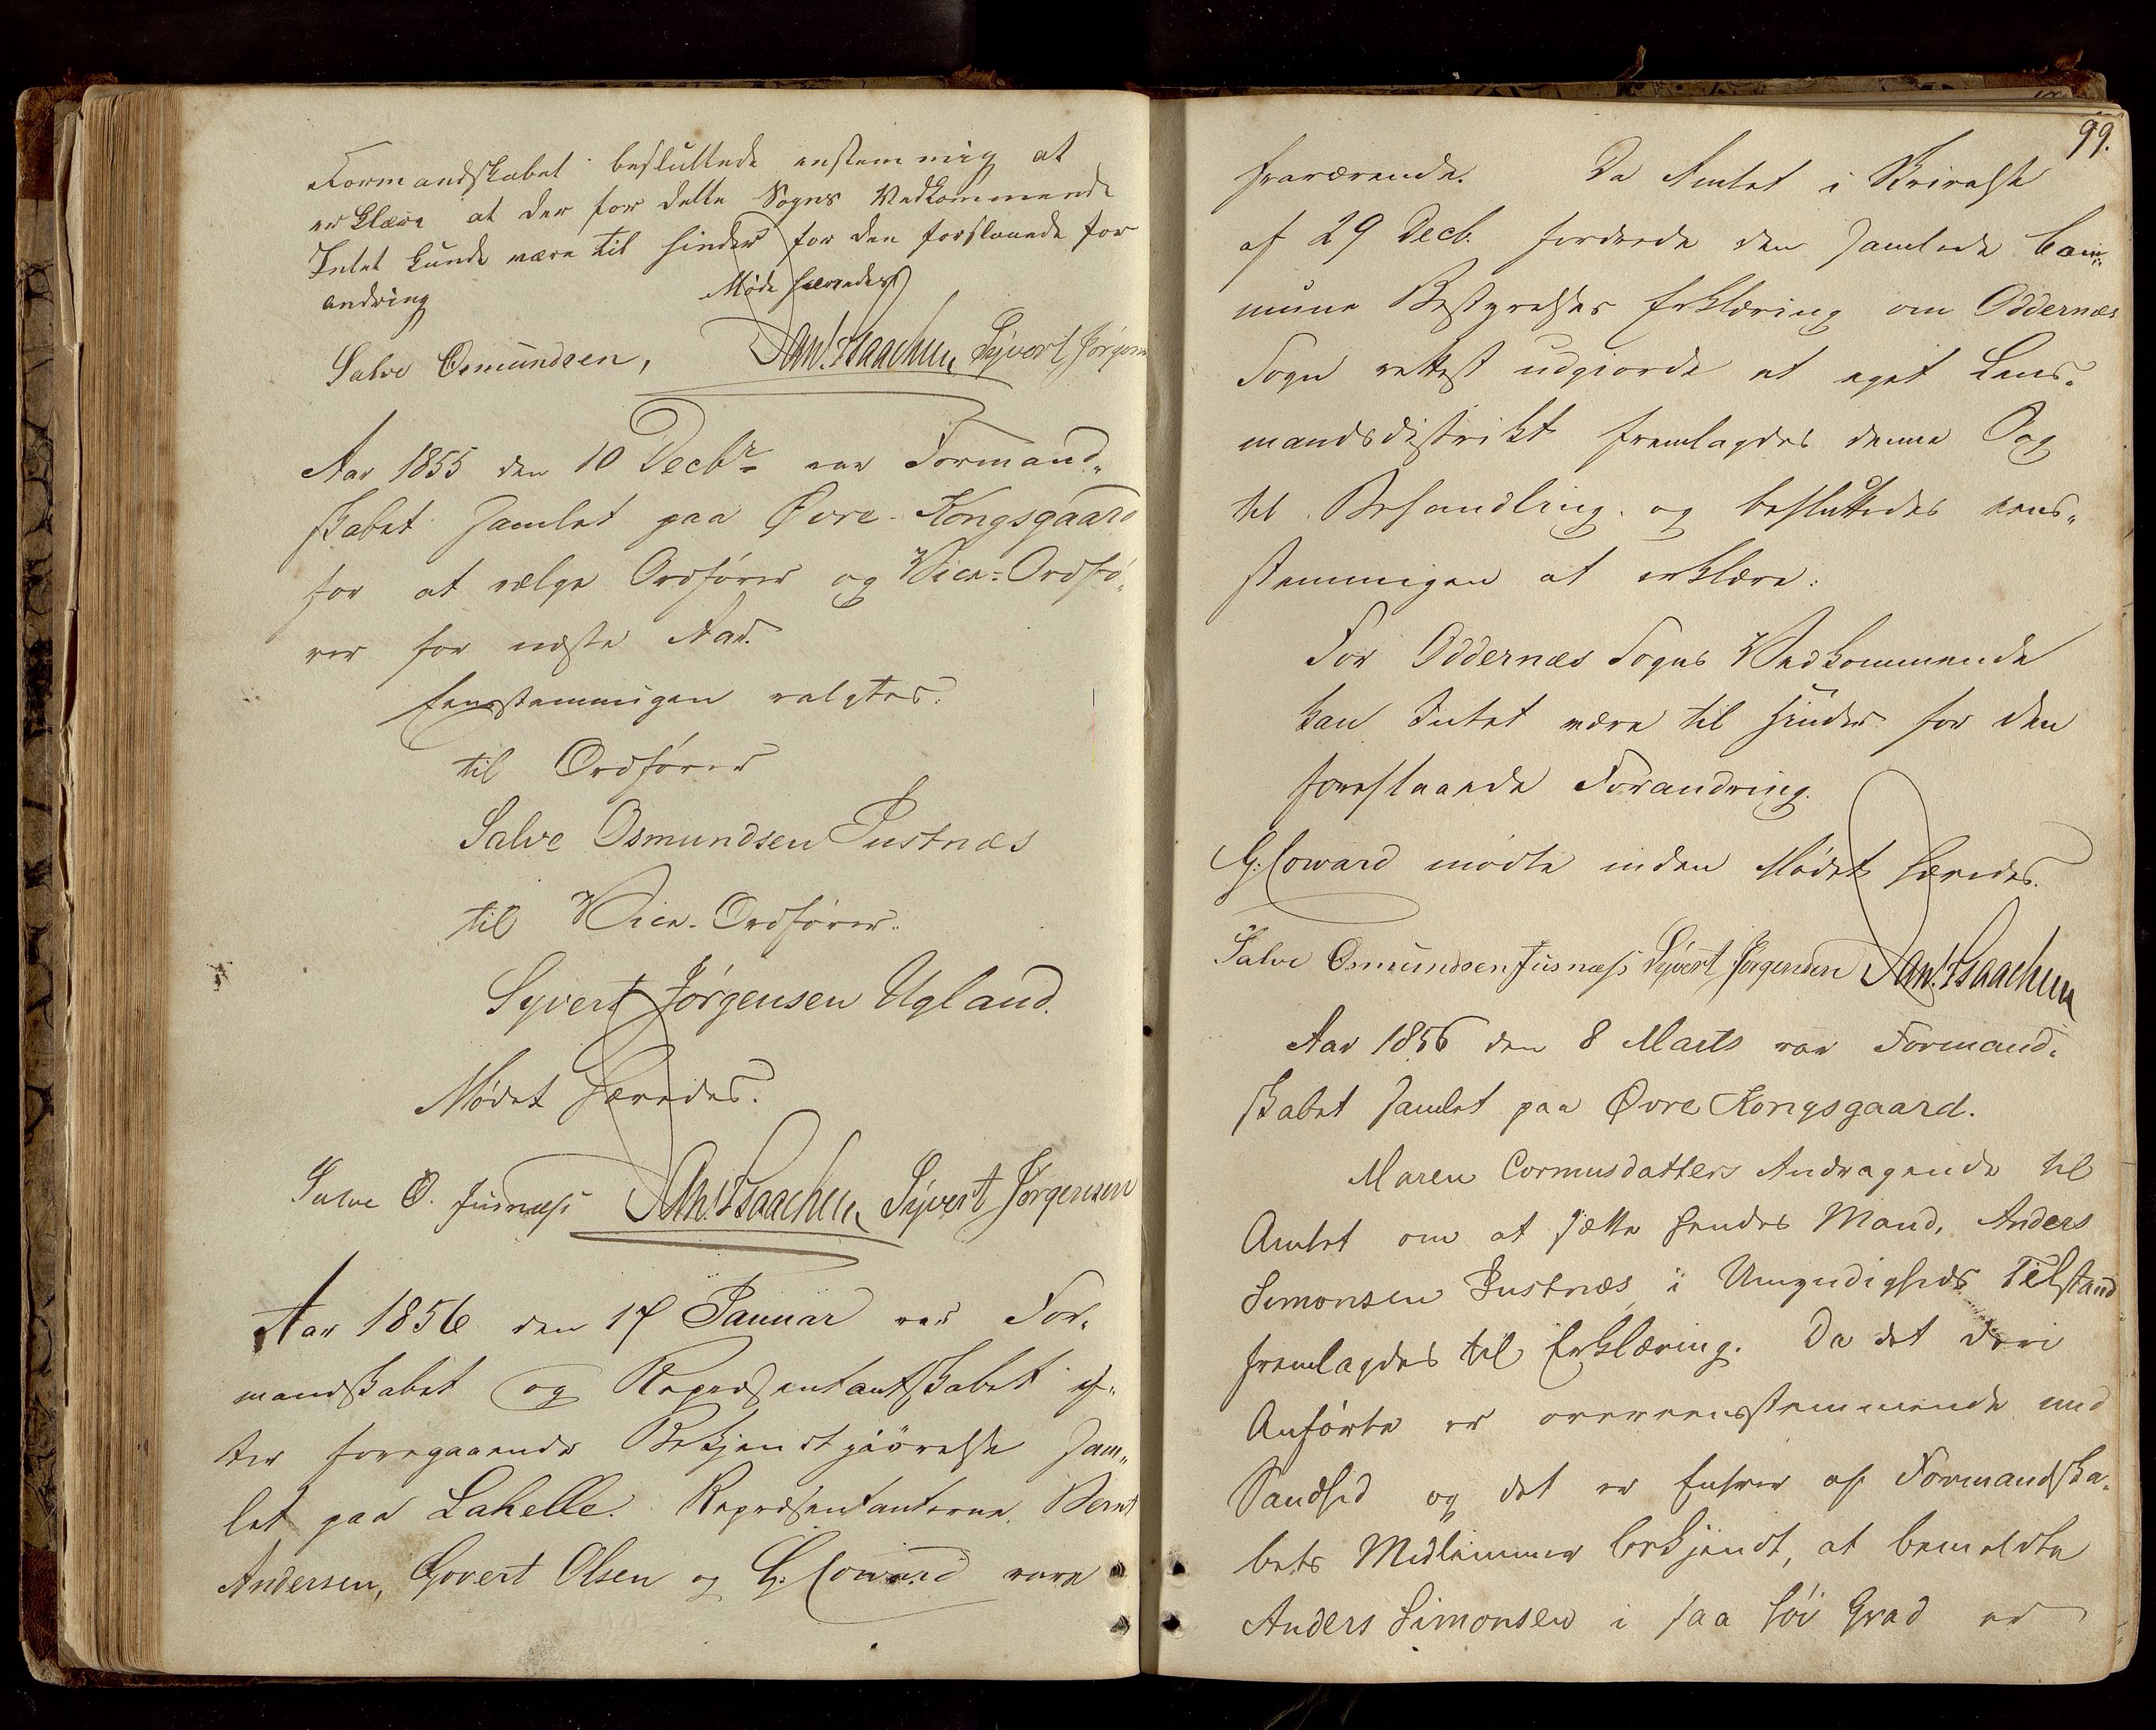 Formandskabet besluttede enstemmig at
erklære at der for dette Sogns Vedkommende
Intet kunde være til Hinder for den forslaaede for
andring
Møde hævedes
Salve Osmundsen, Dan. Isaachsen Syvert Jørgens
Aar 1855 den 10 Decbr var Formand„
skabet samlet paa Øvre-Kongsgaard
for at vælge Ordfører og Vice-Ordfø„
rer for neste Aar.
Eenstemmigen valgtes:
til Ordfører
Salve Osmundsen Justnæs
til Vice-Ordfører.
Syvert Jørgensen Ugland.
Mødet hævedes.
Salve O. Jusnæss Dan. Isaachsen Syvert Jørgensen
Aar 1856 den 17 Januar var For„
mandskabet og Repræsentantskabet ef„
ter foregaaende Bekjendtgjørelse sam„
let paa Lahelle. Repræsentanterne Bernt
Andersen, Govert Olsen og G. Coward vare
99.
fraværende. Da Amtet i Skrivelse
af 29 Decb. fordrede den samlede Com„
mune Bestyrelses Erklæring om Oddernæs
Sogn rettest udgiorde et eget Lens„
mandsdistrikt fremlagdes denne Sag
til Behandling og besluttedes eens„
stemmigen at erklære:
For Oddernæs Sogns Vedkommende
kan Intet være til Hinder for den
foreslaaede Forandring.
G. Coward mødte inden Mødet hævedes.
Salve Osmundsen Jusnæss Syvert Jørgensen Dan. Isaachsen
Aar 1856 den 8 Marts var Formand„
skabet samlet paa Øvre Kongsgaard.
Maren Cormusdatters Andragende til
Amtet om at sætte hendes Mand, Anders
Simonsen Justnæs i Umyndigheds Tilstand
fremlagdes til Erklæring. Da det deri
Anførte er overeensstemmende med
Sandhed og det er Enhver af Formandska„
bets Medlemmer bekjendt, at bemeldte
Anders Simonsen i saa høi Grad er